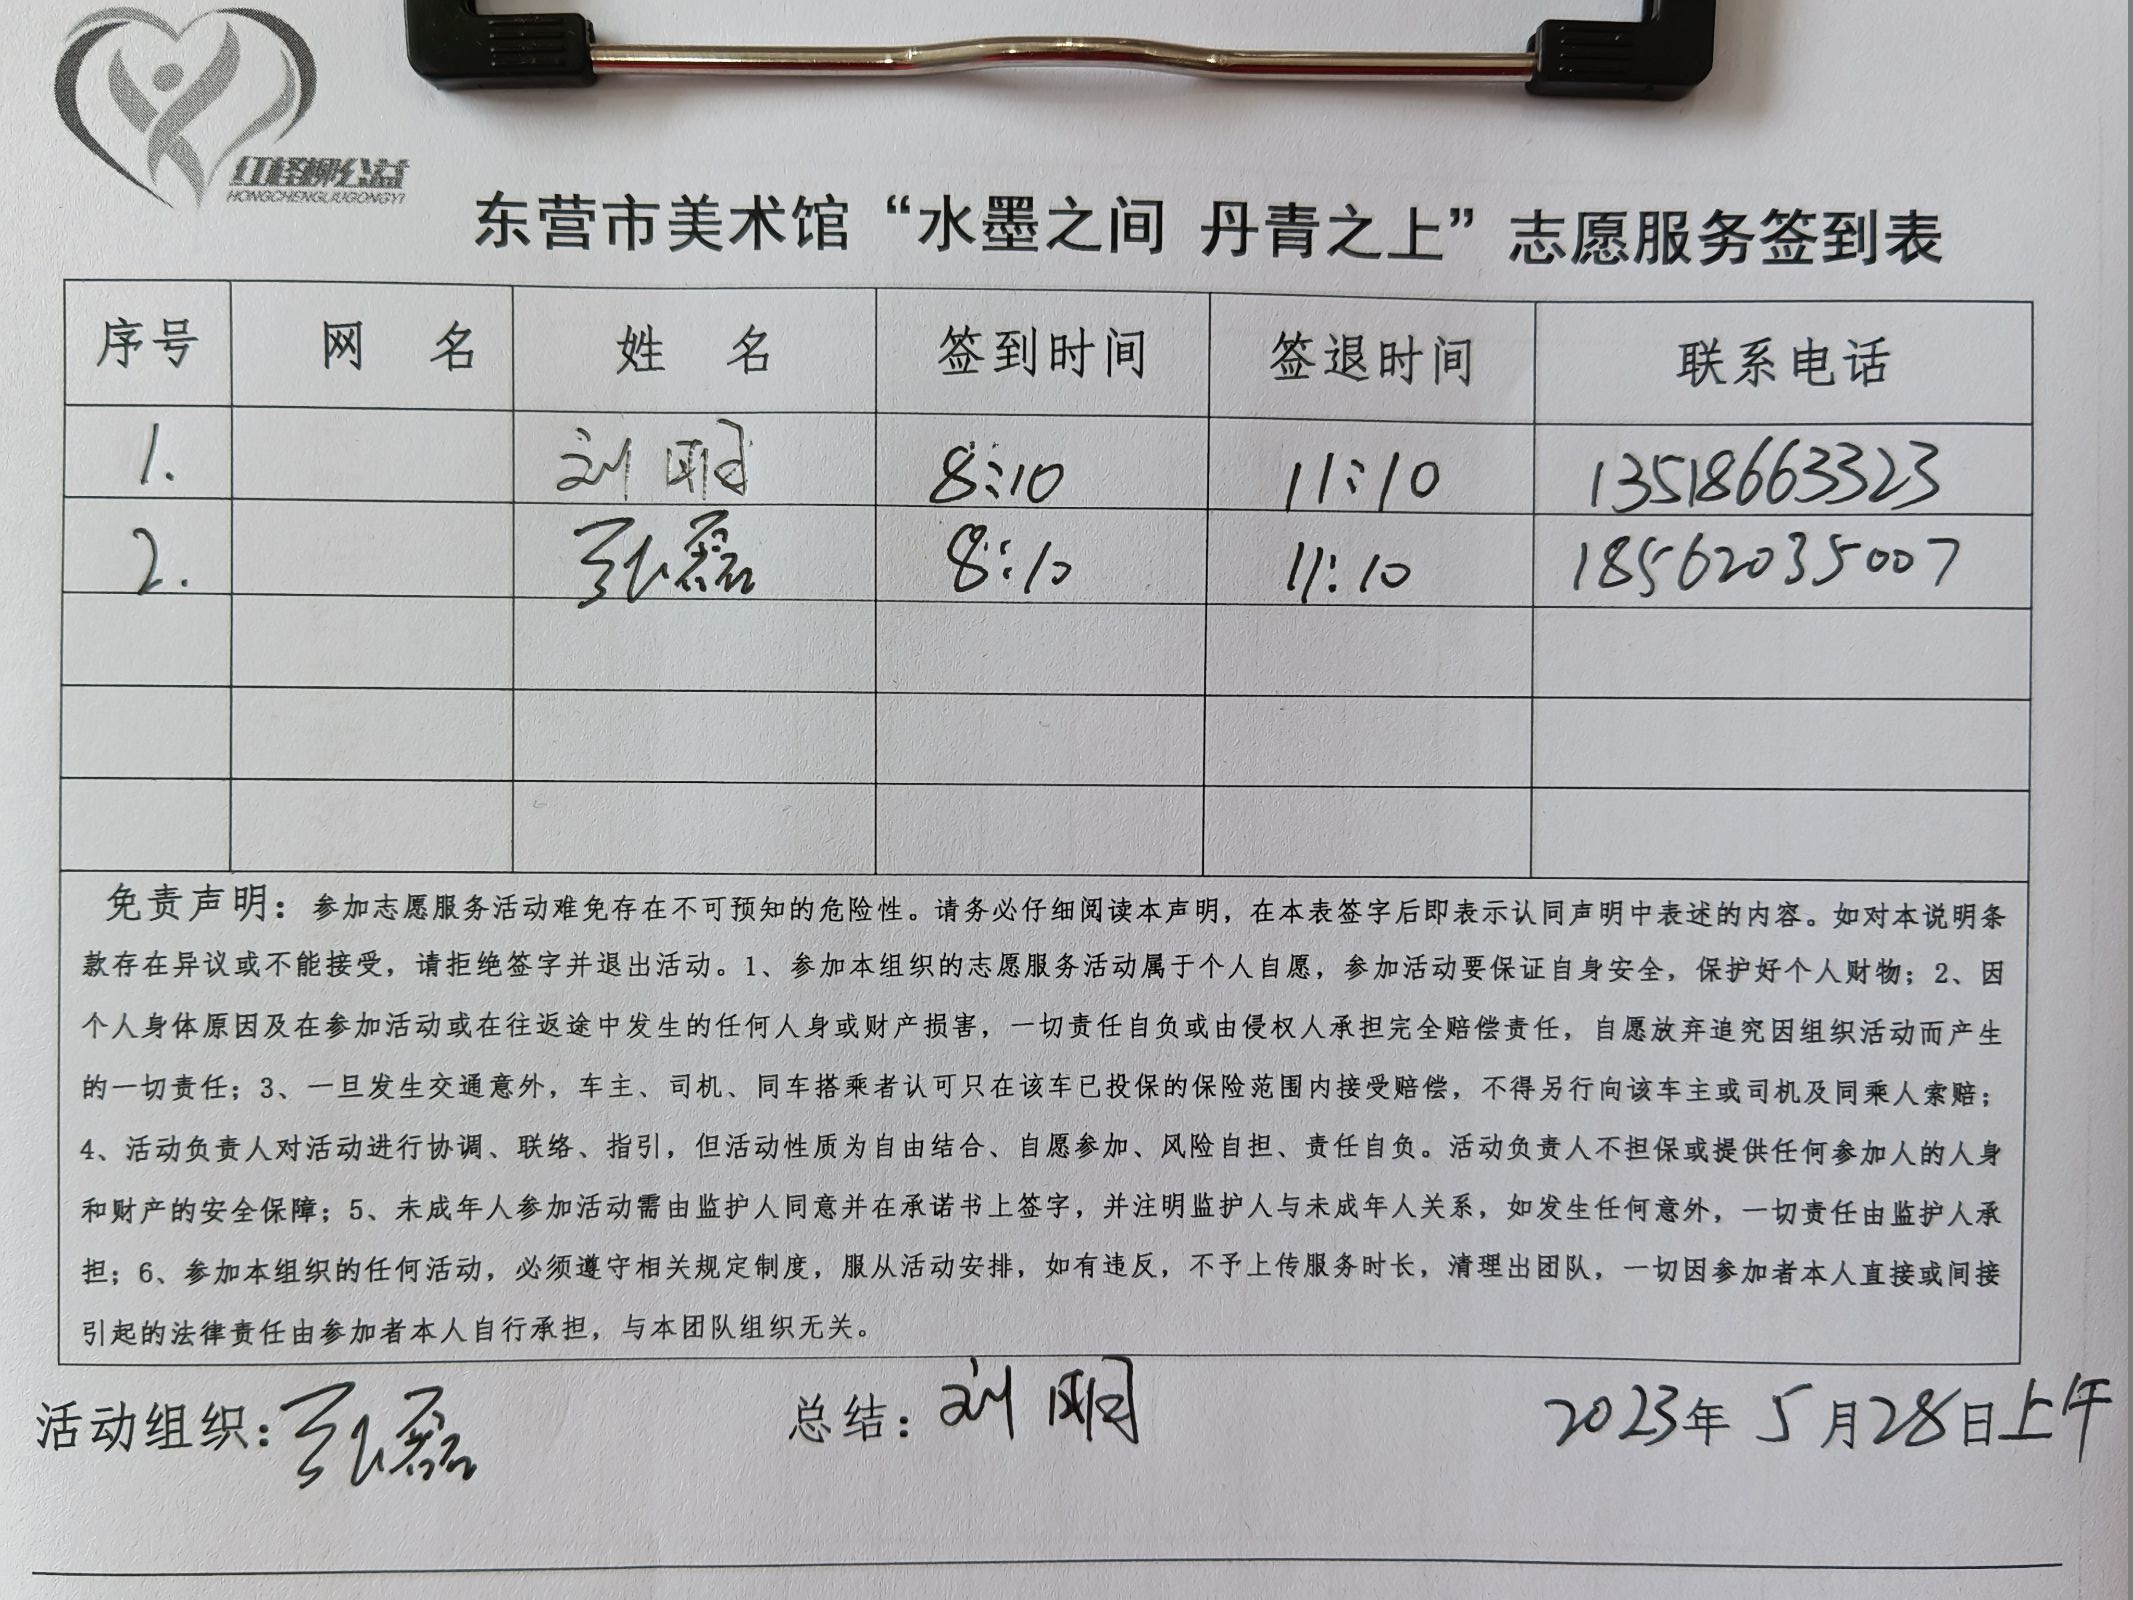 红柽柳公益
HONGCHENGLIUGONGYI
东营市美术馆“水墨之间 丹青之上”志愿服务签到表
序号 网 名 姓 名 签到时间 签退时间 联系电话
1. 刘刚 8:10 11:10 13518663323
2. 张磊 8:10 11:10 18562035007
免责声明：参加志愿服务活动难免存在不可预知的危险性。请务必仔细阅读本声明，在本表签字后即表示认同声明中表述的内容。如对本说明条
款存在异议或不能接受，请拒绝签字并退出活动。1、参加本组织的志愿服务活动属于个人自愿，参加活动要保证自身安全，保护好个人财物；2、因
个人身体原因及在参加活动或在往返途中发生的任何人身或财产损害，一切责任自负或由侵权人承担完全赔偿责任，自愿放弃追究因组织活动而产生
的一切责任；3、一旦发生交通意外，车主、司机、同车搭乘者认可只在该车已投保的保险范围内接受赔偿，不得另行向该车主或司机及同乘人索赔；
4、活动负责人对活动进行协调、联络、指引，但活动性质为自由结合、自愿参加、风险自担、责任自负。活动负责人不担保或提供任何参加人的人身
和财产的安全保障；5、未成年人参加活动需由监护人同意并在承诺书上签字，并注明监护人与未成年人关系，如发生任何意外，一切责任由监护人承
担；6、参加本组织的任何活动，必须遵守相关规定制度，服从活动安排，如有违反，不予上传服务时长，清理出团队，一切因参加者本人直接或间接
引起的法律责任由参加者本人自行承担，与本团队组织无关。
活动组织：张磊 总结：刘刚 2023年 5月28日上午